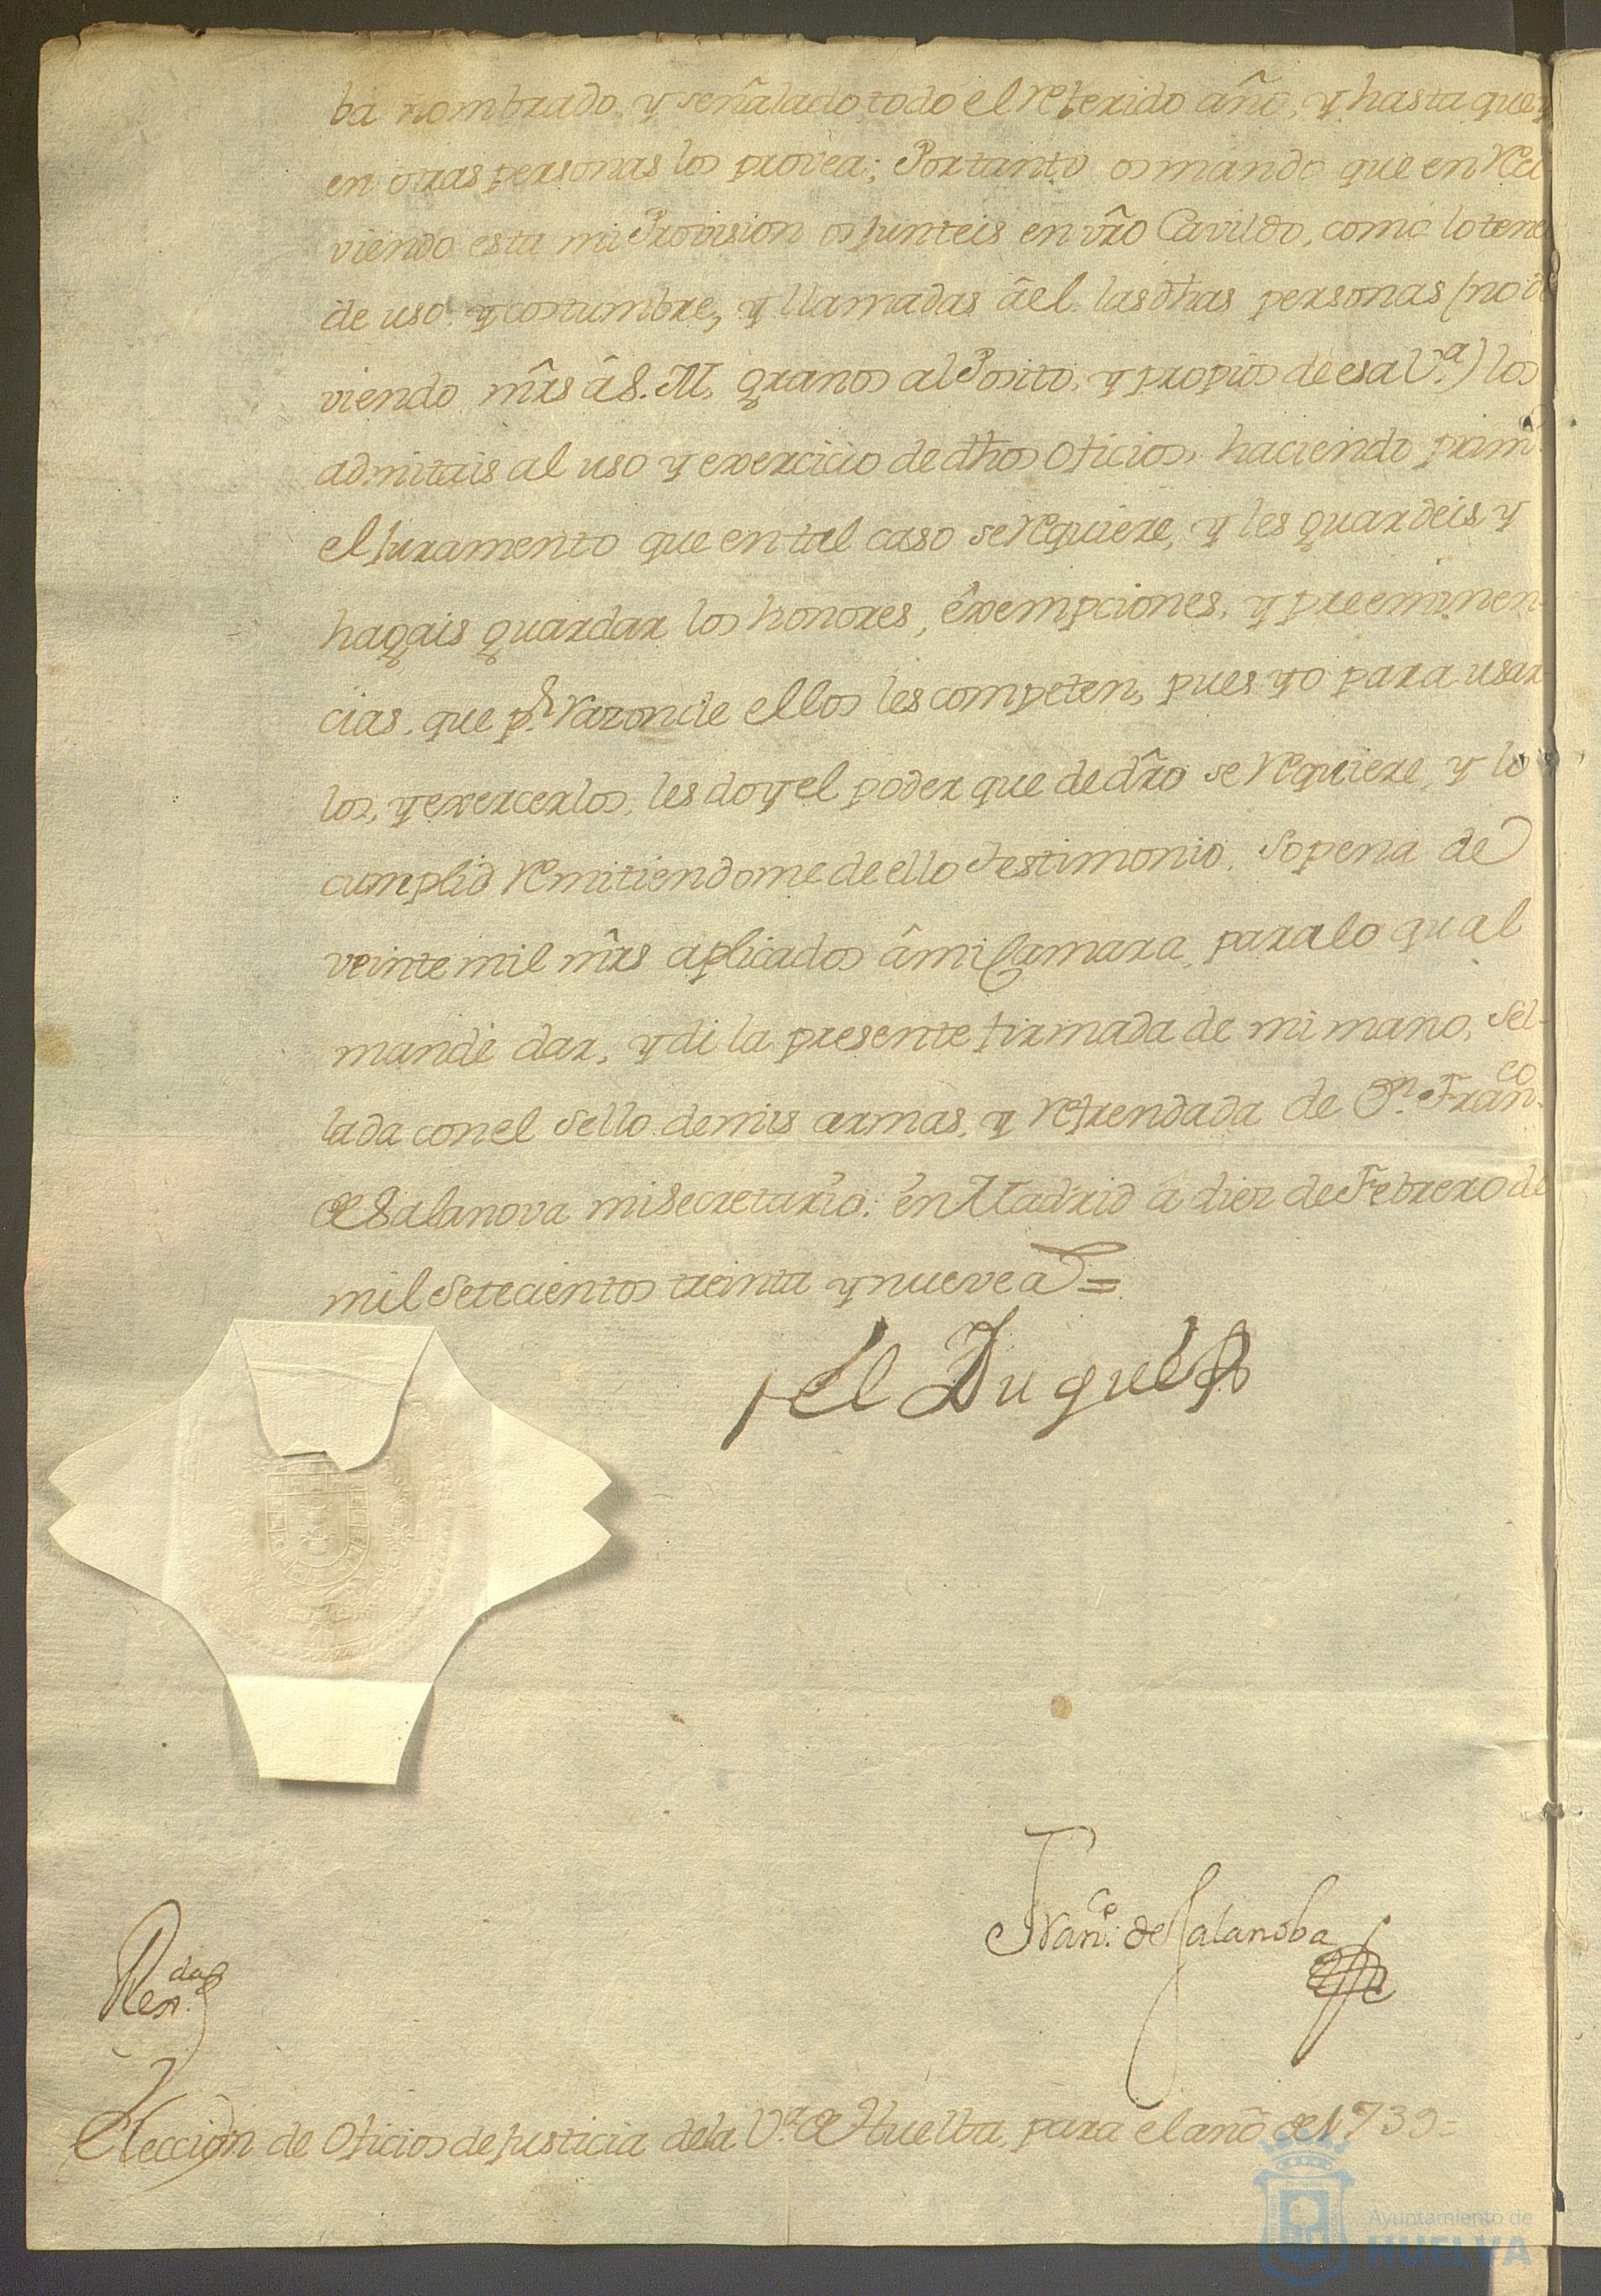 ba nombrado, y señalado todo el referido año, y hasta que
en otras personas los provea; Portanto os mando que en Reci
viendo esta mi Provision os junteis en vrô Cavildo, como lo tene
de uso, y costumbre, y llamadas âel las dhas personas (no de
viendo mrs̃ â S. M. granos al Posito, y propios de esa V.ª) los
admitais al uso y exercicio de dhos oficios, haciendo prim
el juramento que en tal caso se Requiere, y les guardeis, y
hagais guardar los honores, êxempciones, y preeminen-
cias, que p.r Razon de ellos les competen, pues yo para usar-
los, y exercerlos, les doy el poder que de drô se Requiere, y lo
cumplid Remitiendome de ello Testimonio, sopena de
veinte mil mrs̃ aplicados âmi Camara, para lo qual
mande dar, y di la presente firmada de mi mano, Sel-
lada con el Sello de mis armas, y Refrendada de Dn. Franco
de Salanova mi Secretario: en Madrid â diez de Febrero de
mil Setecientos treinta y nueve a.s =
El Duque
Franco. de Salanoba
Rexda.
Eleccion de Oficios de justicia dela V.ª de Huelba, para el año de 1739=
Ayuntamiento de
HUELVA